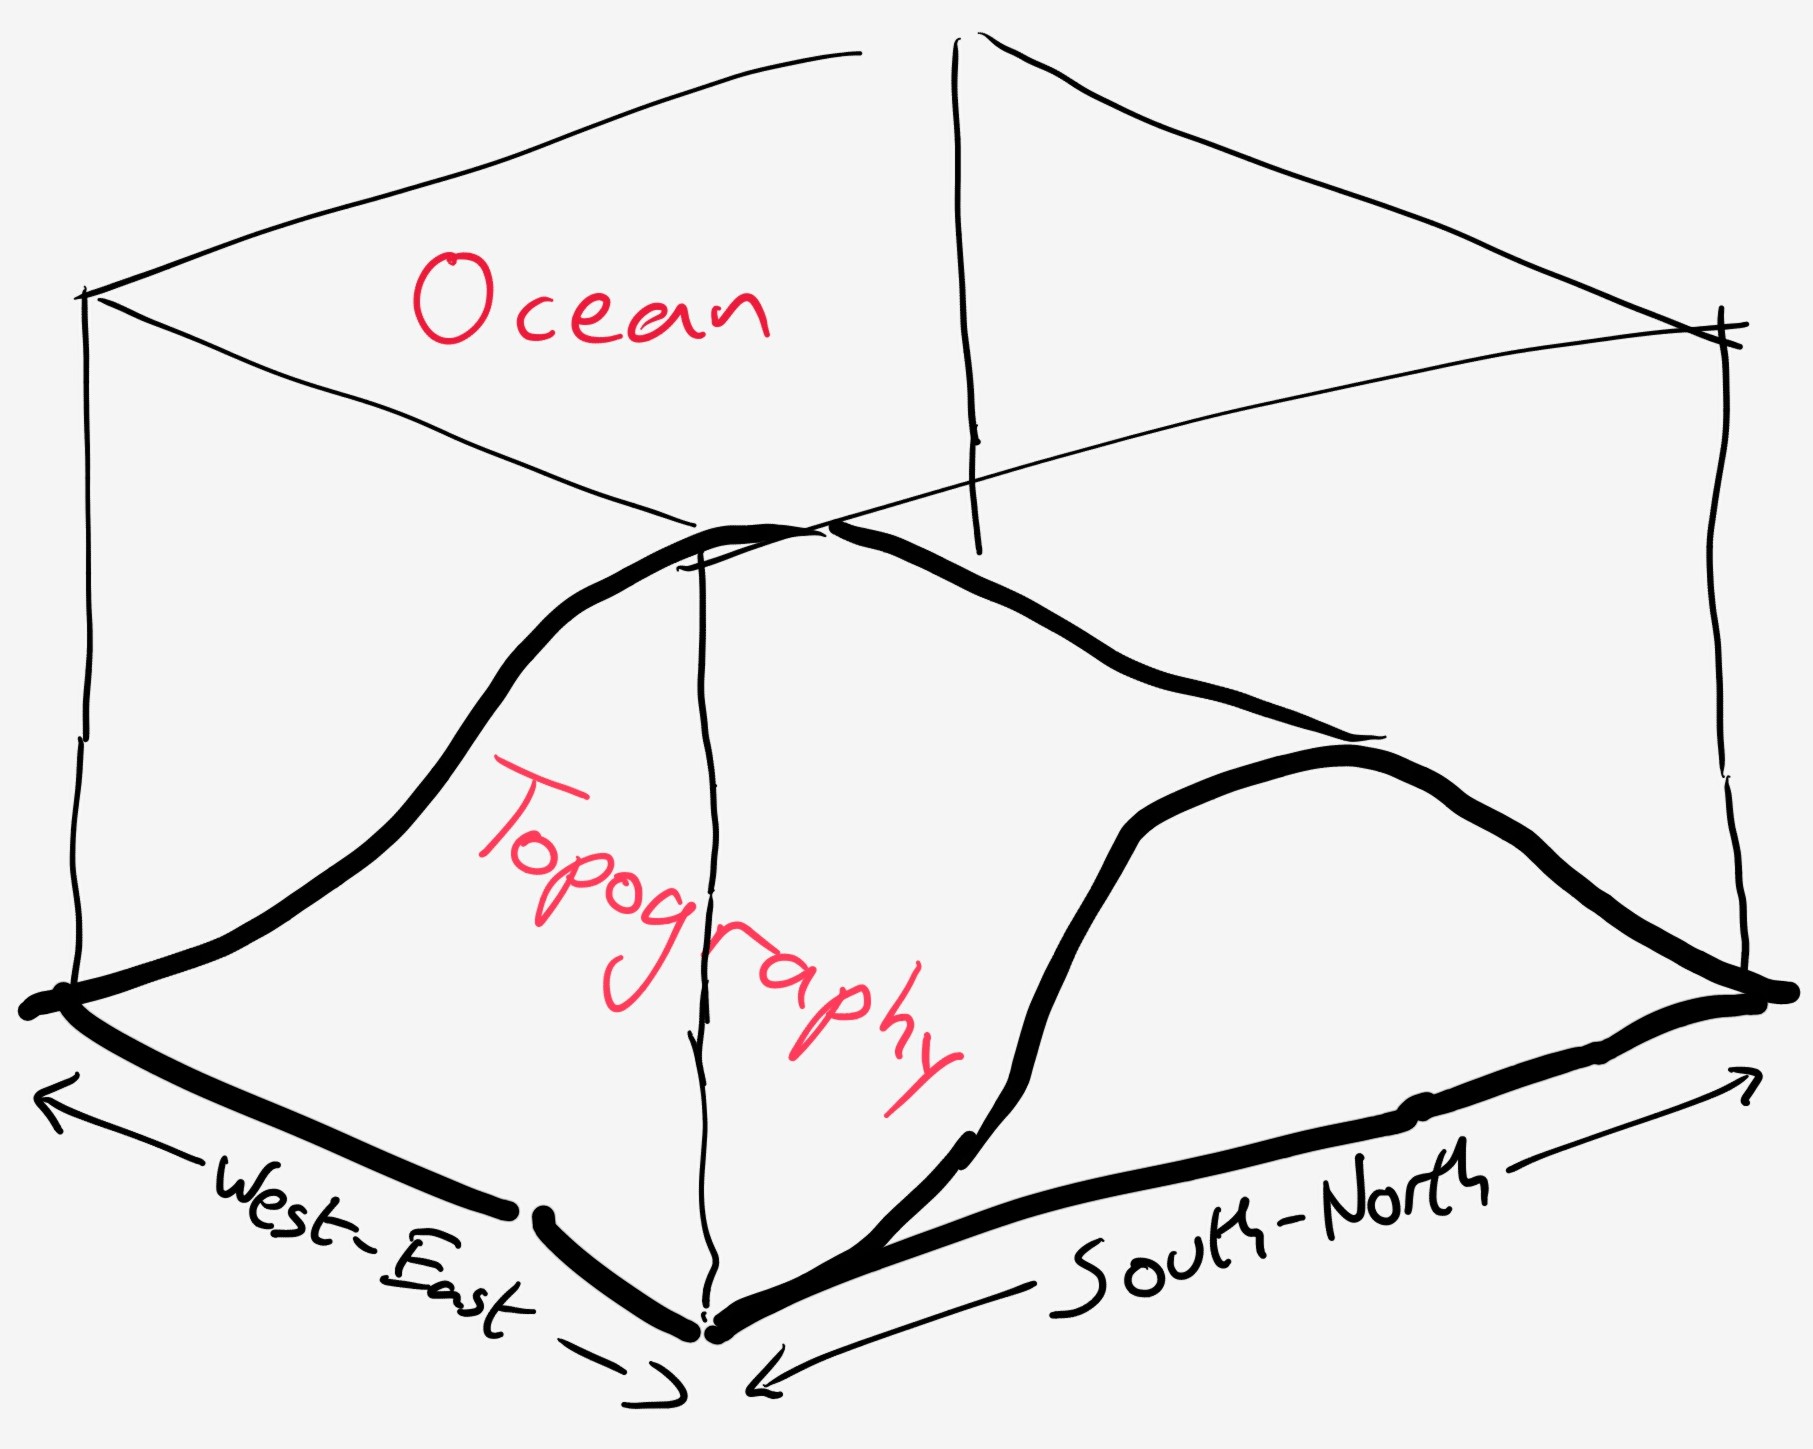 Ocean
Topography
West-East
South-North